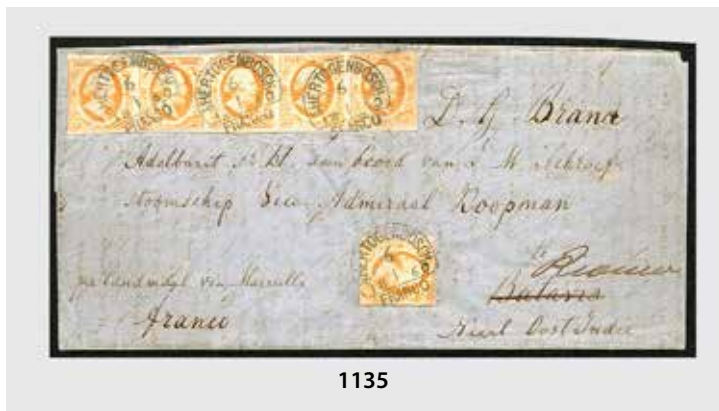 'S HERTOGENBOSCH
FRANCO
'S HERTOGENBOSCH
FRANCO
'S HERTOGENBOSCH
6
FRANCO
D. G. Brand
Adelborst aan boord van Z M Schroef
Stoomschip Vice Admiraal Koopman
te
'S HERTOGENBOSCH
6
FRANCO
per landmail via Marseille
Batavia
Franco
Neerl Oost Indie
1135